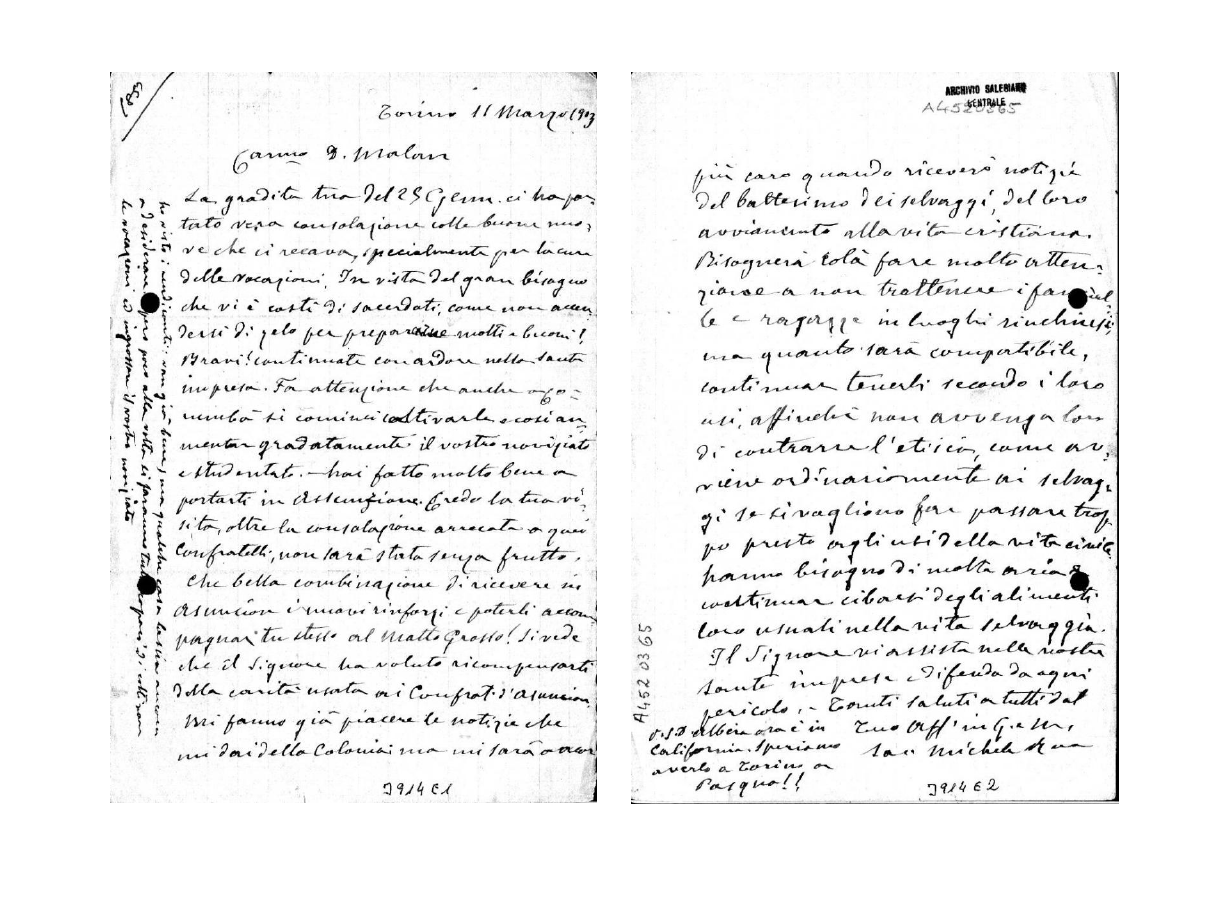 Torino 11 Marzo 1903
Carmo D. Malan
La gradita tua del 25 Genn. ci ha por-
tato vera consolazione colle buone nuo-
ve che ci recava, specialmente per la cura
delle vocazioni. In vista del gran bisogno
che vi è costì di sacerdoti, come non accen
dersi di zelo per preparare molti e buoni!
Bravi! continuate con ardore nella santa
impresa. Fa attenzione che anche a Co-
rumbà si cominci coltivarle e così au-
mentar gradatamente il vostro noviziato
e studentato. - hai fatto molto bene a
portarti in Assunzione. Credo la tua vi-
sita, oltre la consolazione arrecata a quei
Confratelli, non sarà stata senza frutto.
Che bella combinazione di ricevere in
Asuncion i nuovi rinforzi e poterli accom
pagnar tu stesso al Matto Grosso! Si vede
che il Signore ha voluto ricompensarti
della carità usata ai Confrat. d'Asuncion
Mi fanno già piacere le notizie che
mi dai della Colonia: ma mi sarà ancor
ho visto i rendiconti: son già bene, ma qualche cosa lascia ancora
a desiderare, spero poco alla volta si faranno
le vocazioni ed ingrossar il vostro noviziato
J914 C1
ARCHIVIO SALESIANO
CENTRALE
A4520365
più caro quando riceverò notizie
del battesimo dei selvaggi, del loro
avviamento alla vita cristiana.
Bisognerà colà fare molta atten-
zione a non trattenere i fanciul
le e ragazze in luoghi rinchiusi;
ma quanto sarà compatibile,
continuar tenerli secondo i loro
usi, affinchè non avvenga loro
di contrarre l'etisia, come av-
viene ordinariamente ai selvag-
gi se si vogliono far passare trop
po presto agli usi della vita civile.
hanno bisogno di molta aria e
continuar cibarsi degli alimenti
loro usuali nella vita selvaggia.
Il Signore vi assista nelle vostre
sante imprese e difenda da ogni
pericolo. - Tanti saluti a tutti dal
Tuo Aff' in G. e M.
Sac. Michele Rua
P.S. D. Albera ora è in
California. Speriamo
averlo a Torino a
Pasqua!!
A4520365
J914 C2